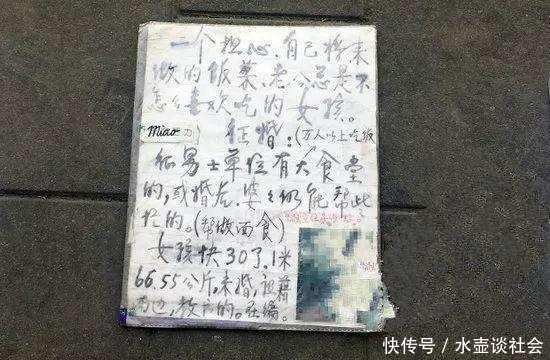 一个粗心,自己将来
做的饭菜,老公总是不
怎么喜欢吃的女孩。
miao
征婚:(万人以上吃饭
征男士单位有大食堂
的,或婚后,婆婆仍能帮此
忙的。(帮做面食)
女孩快30了,1米
66.55公斤,未婚,祖籍
教户的。在编。
快传号/水壶谈社会